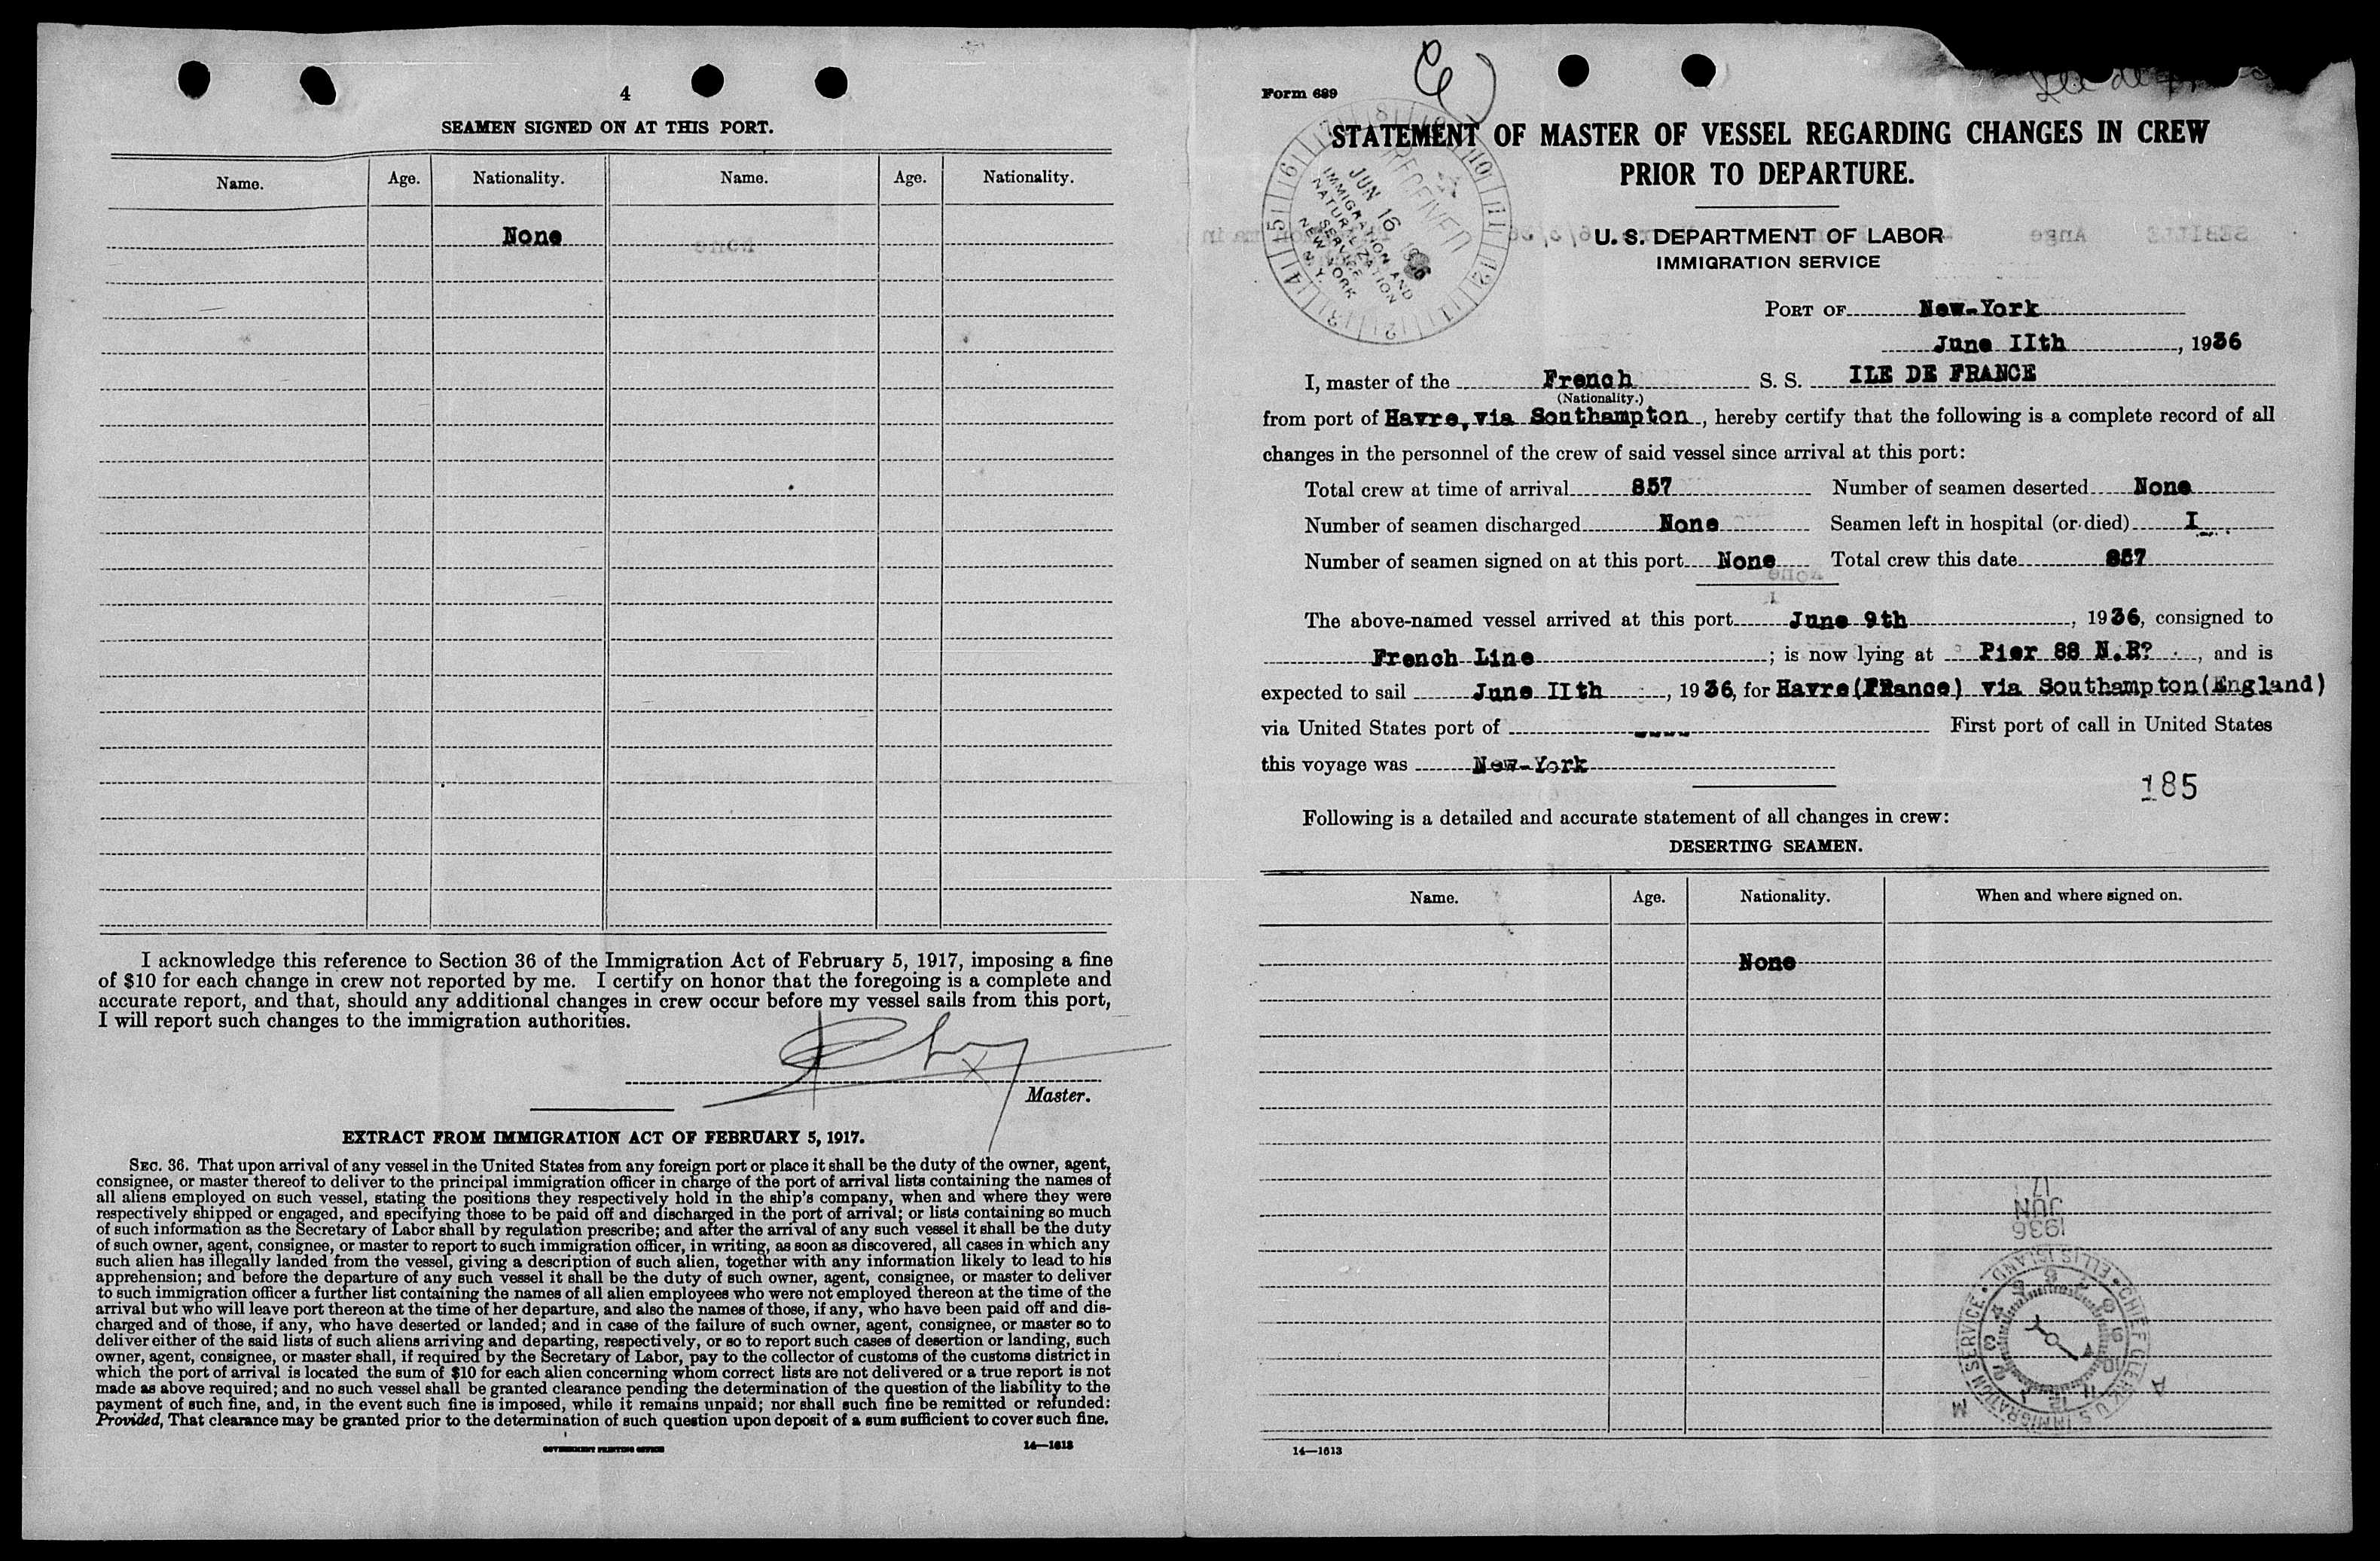 4
SEAMEN SIGNED ON AT THIS PORT.
Name. Age. Nationality. Name. Age. Nationality.
None
I acknowledge this reference to Section 36 of the Immigration Act of February 5, 1917, imposing a fine
of $10 for each change in crew not reported by me. I certify on honor that the foregoing is a complete and
accurate report, and that, should any additional changes in crew occur before my vessel sails from this port,
I will report such changes to the immigration authorities.
Master.
EXTRACT FROM IMMIGRATION ACT OF FEBRUARY 5, 1917.
SEC. 36. That upon arrival of any vessel in the United States from any foreign port or place it shall be the duty of the owner, agent,
consignee, or master thereof to deliver to the principal immigration officer in charge of the port of arrival lists containing the names of
all aliens employed on such vessel, stating the positions they respectively hold in the ship's company, when and where they were
respectively shipped or engaged, and specifying those to be paid off and discharged in the port of arrival; or lists containing so much
of such information as the Secretary of Labor shall by regulation prescribe; and after the arrival of any such vessel it shall be the duty
of such owner, agent, consignee, or master to report to such immigration officer, in writing, as soon as discovered, all cases in which any
such alien has illegally landed from the vessel, giving a description of such alien, together with any information likely to lead to his
apprehension; and before the departure of any such vessel it shall be the duty of such owner, agent, consignee, or master to deliver
to such immigration officer a further list containing the names of all alien employees who were not employed thereon at the time of the
arrival but who will leave port thereon at the time of her departure, and also the names of those, if any, who have been paid off and dis-
charged and of those, if any, who have deserted or landed; and in case of the failure of such owner, agent, consignee, or master so to
deliver either of the said lists of such aliens arriving and departing, respectively, or so to report such cases of desertion or landing, such
owner, agent, consignee, or master shall, if required by the Secretary of Labor, pay to the collector of customs of the customs district in
which the port of arrival is located the sum of $10 for each alien concerning whom correct lists are not delivered or a true report is not
made as above required; and no such vessel shall be granted clearance pending the determination of the question of the liability to the
payment of such fine, and, in the event such fine is imposed, while it remains unpaid; nor shall such fine be remitted or refunded:
Provided, That clearance may be granted prior to the determination of such question upon deposit of a sum sufficient to cover such fine.
GOVERNMENT PRINTING OFFICE 14—1613
Form 689
STATEMENT OF MASTER OF VESSEL REGARDING CHANGES IN CREW
PRIOR TO DEPARTURE.
RECEIVED
JUN 16 1936
IMMIGRATION AND
NATURALIZATION
SERVICE
NEW YORK
N. Y.
U. S. DEPARTMENT OF LABOR
IMMIGRATION SERVICE
PORT OF New-York
June IIth, 1936
I, master of the French S. S. ILE DE FRANCE
(Nationality.)
from port of Havre, via Southampton, hereby certify that the following is a complete record of all
changes in the personnel of the crew of said vessel since arrival at this port:
Total crew at time of arrival 857 Number of seamen deserted None
Number of seamen discharged None Seamen left in hospital (or died) I
Number of seamen signed on at this port None Total crew this date 857
The above-named vessel arrived at this port June 9th, 1936, consigned to
French Line; is now lying at Pier 88 N.R?, and is
expected to sail June IIth, 1936, for Havre(FRance) via Southampton(England)
via United States port of ---- First port of call in United States
this voyage was New-York
185
Following is a detailed and accurate statement of all changes in crew:
DESERTING SEAMEN.
Name. Age. Nationality. When and where signed on.
None
17
JUN
1936
CHIEF CLERK U S IMMIGRATION SERVICE • ELLIS ISLAND •
A M
14—1613